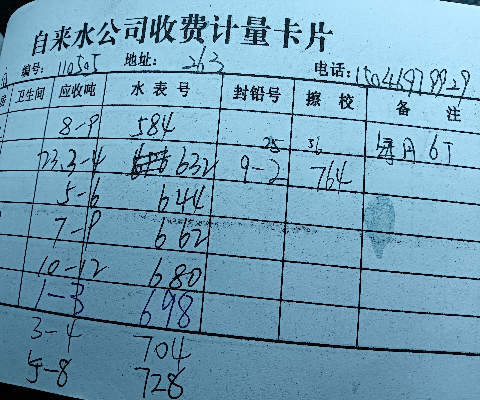 自来水公司收费计量卡片
编号: 110505 地址: 263 电话:
卫生间 应收吨 水表号 封铅号 擦校 备注
8-9 584 每月6T
23.3-4 632 9-2 25 764 56
5-6 644
7-9 662
10-12 680
1-3 698
3-4 704
5-8 728